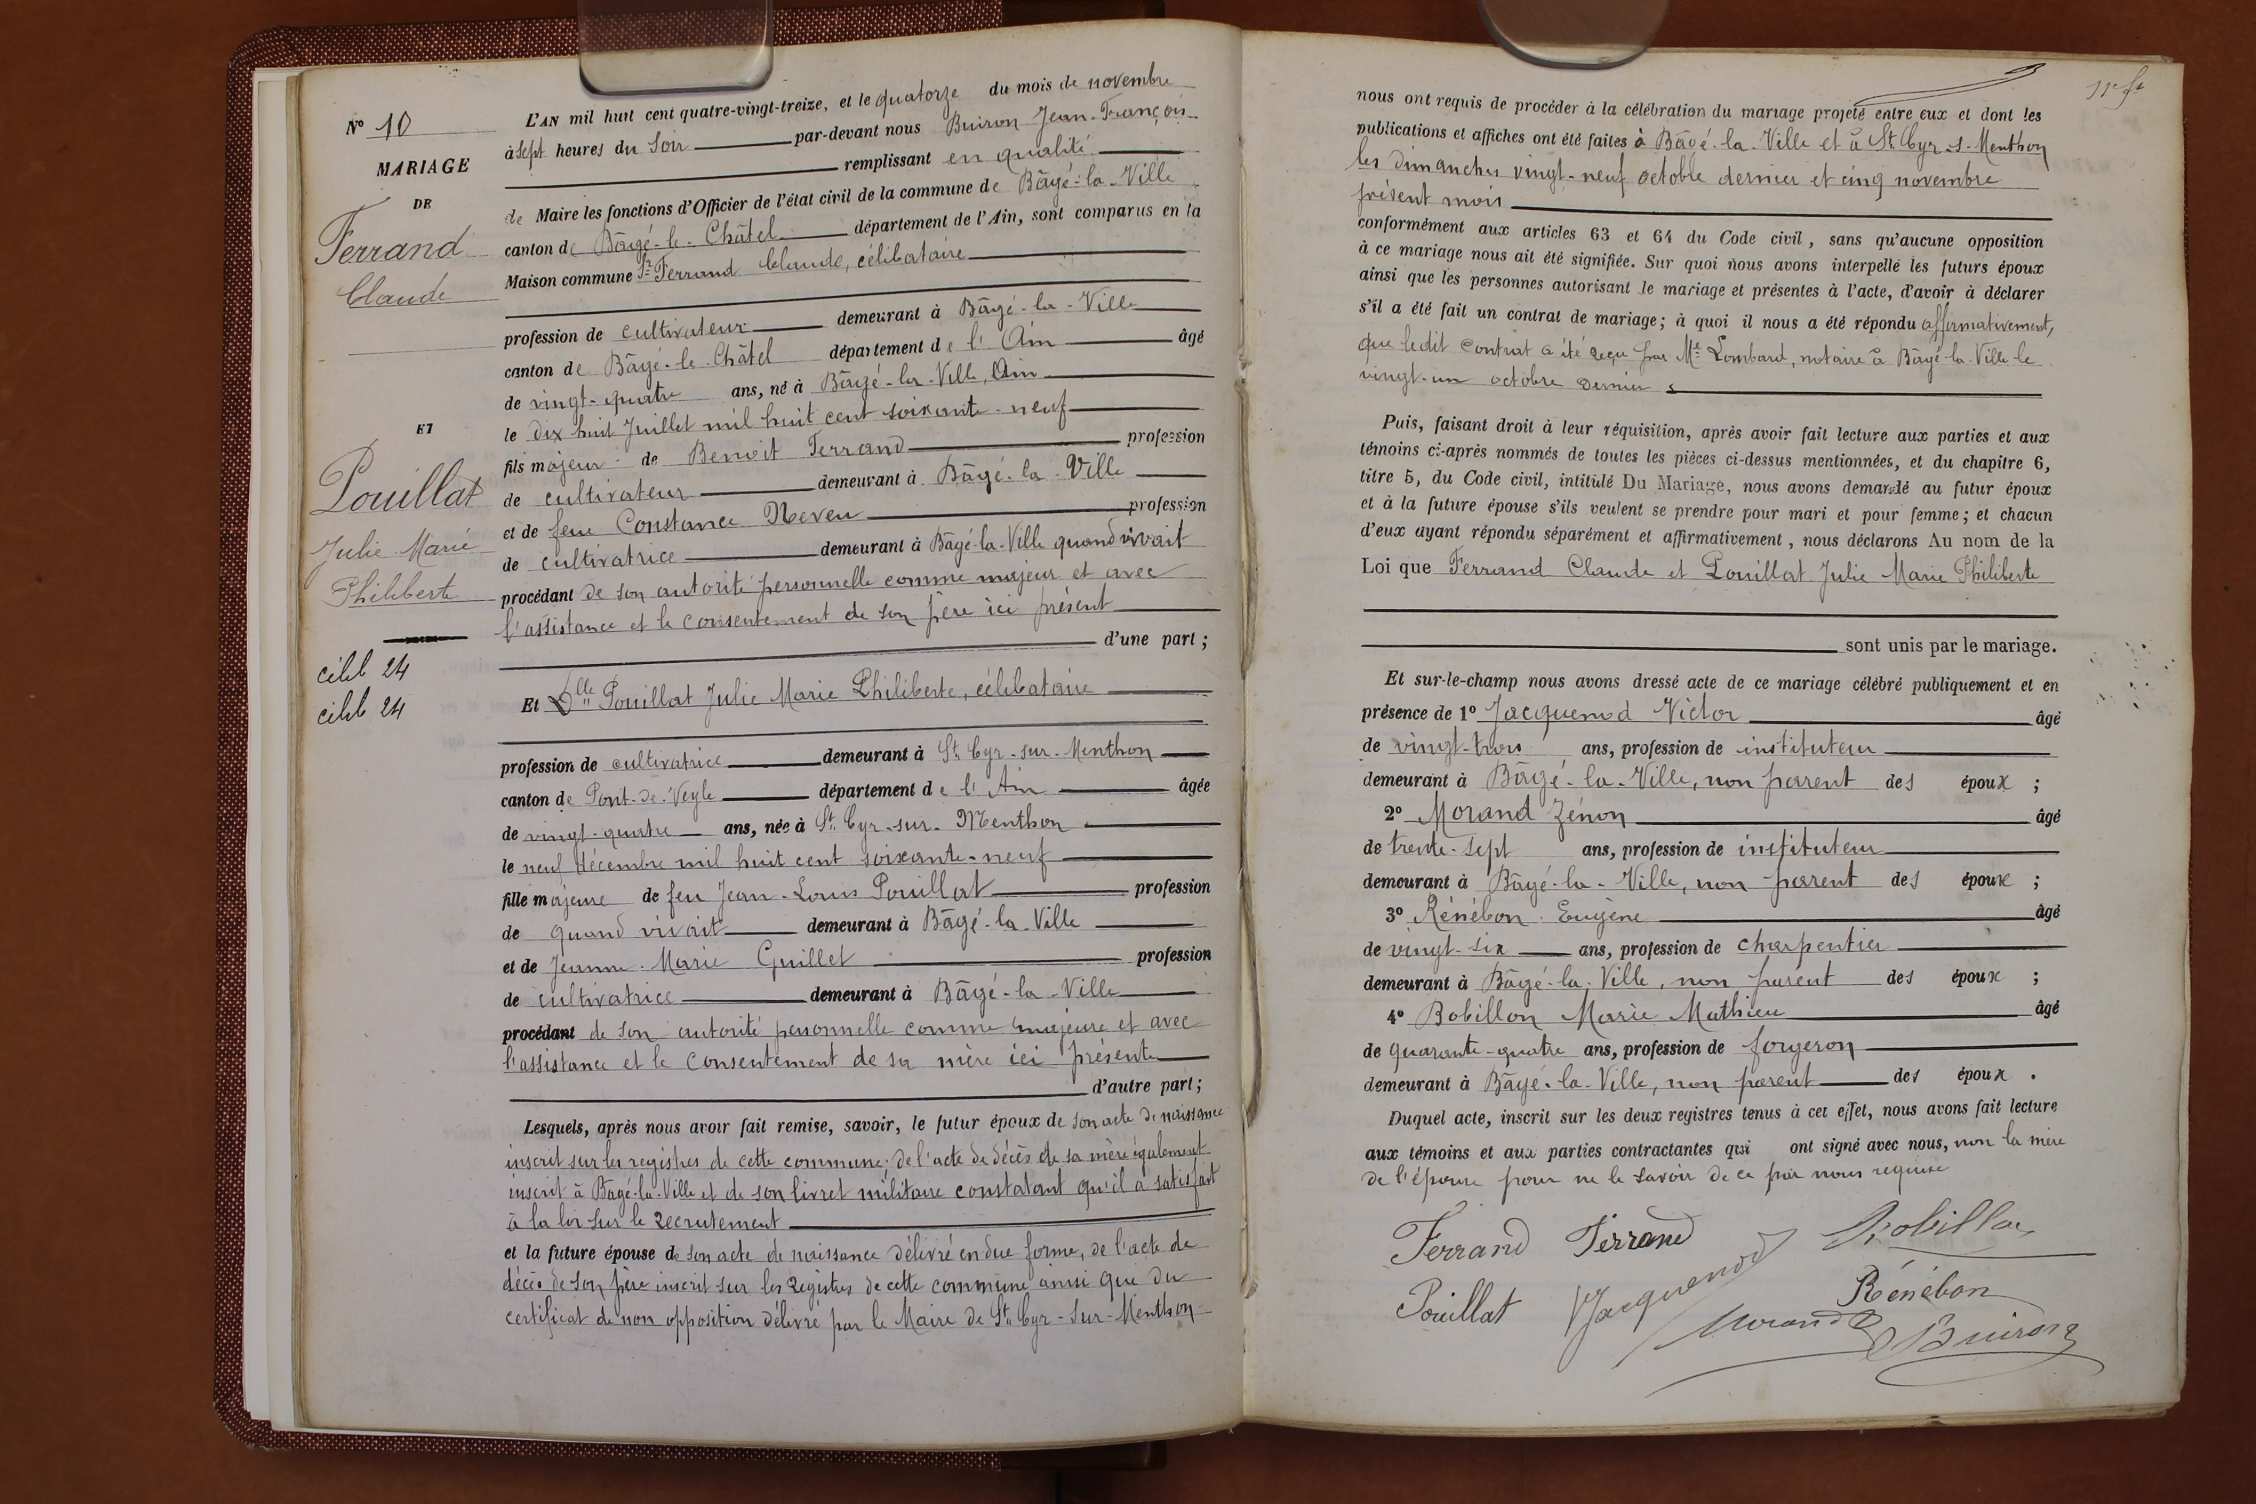 N° 10
MARIAGE
DE
Ferrand
Claude
ET
Pouillat
Julie Marie
Philiberte
célib 24
célib 24
L'AN mil huit cent quatre-vingt-treize, et le quatorze du mois de novembre
à sept heures du soir par-devant nous Buiron Jean-François
remplissant en qualité
de Maire les fonctions d'Officier de l'état civil de la commune de Bâgé-la-Ville
canton de Bâgé-le-Châtel département de l'Ain, sont comparus en la
Maison commune Sr Ferrand Claude, célibataire
profession de cultivateur demeurant à Bâgé-la-Ville
canton de Bâgé-le-Châtel département de l'Ain âgé
de vingt-quatre ans, né à Bâgé-la-Ville, Ain
le dix huit Juillet mil huit cent soixante-neuf
fils majeur de Benoit Ferrand profession
de cultivateur demeurant à Bâgé-la-Ville
et de feue Constance Neveu profession
de cultivatrice demeurant à Bâgé-la-Ville quand vivait
procédant de son autorité personnelle comme majeur et avec
l'assistance et le consentement de son père ici présent
d'une part ;
Et Dlle Pouillat Julie Marie Philiberte, célibataire
profession de cultivatrice demeurant à St Cyr-sur-Menthon
canton de Pont-de-Veyle département de l'Ain âgée
de vingt-quatre ans, née à St Cyr-sur-Menthon
le neuf décembre mil huit cent soixante-neuf
fille majeure de feu Jean-Louis Pouillat profession
de quand vivait demeurant à Bâgé-la-Ville
et de Jeanne-Marie Guillet profession
de cultivatrice demeurant à Bâgé-la-Ville
procédant de son autorité personnelle comme majeure et avec
l'assistance et le consentement de sa mère ici présente
d'autre part ;
Lesquels, après nous avoir fait remise, savoir, le futur époux de son acte de naissance
inscrit sur les registres de cette commune; de l'acte de décès de sa mère également
inscrit à Bâgé-la-Ville et de son livret militaire constatant qu'il a satisfait
à la loi sur le recrutement
et la future épouse de son acte de naissance délivré en due forme, de l'acte de
décès de son père inscrit sur les registres de cette commune ainsi que du
certificat de non opposition délivré par le Maire de St Cyr-sur-Menthon
nous ont requis de procéder à la célébration du mariage projeté entre eux et dont les
publications et affiches ont été faites à Bâgé-la-Ville et à St Cyr-s-Menthon
les dimanches vingt-neuf octobre dernier et cinq novembre
présent mois
conformément aux articles 63 et 64 du Code civil, sans qu'aucune opposition
à ce mariage nous ait été signifiée. Sur quoi nous avons interpellé les futurs époux
ainsi que les personnes autorisant le mariage et présentes à l'acte, d'avoir à déclarer
s'il a été fait un contrat de mariage ; à quoi il nous a été répondu affirmativement,
que le dit contrat a été reçu par Me Lombard, notaire à Bâgé-la-Ville le
vingt-un octobre dernier
Puis, faisant droit à leur réquisition, après avoir fait lecture aux parties et aux
témoins ci-après nommés de toutes les pièces ci-dessus mentionnées, et du chapitre 6,
titre 5, du Code civil, intitulé Du Mariage, nous avons demandé au futur époux
et à la future épouse s'ils veulent se prendre pour mari et pour femme ; et chacun
d'eux ayant répondu séparément et affirmativement, nous déclarons Au nom de la
Loi que Ferrand Claude et Pouillat Julie Marie Philiberte
sont unis par le mariage.
Et sur-le-champ nous avons dressé acte de ce mariage célébré publiquement et en
présence de 1° Jacquemod Victor âgé
de vingt-trois ans, profession de instituteur
demeurant à Bâgé-la-Ville, non parent des époux ;
2° Morand Zénon âgé
de trente-sept ans, profession de instituteur
demeurant à Bâgé-la-Ville, non parent des époux ;
3° Rénébon Eugène âgé
de vingt-six ans, profession de charpentier
demeurant à Bâgé-la-Ville, non parent des époux ;
4° Bobillon Marie Mathieu âgé
de quarante-quatre ans, profession de forgeron
demeurant à Bâgé-la-Ville, non parent des époux.
Duquel acte, inscrit sur les deux registres tenus à cet effet, nous avons fait lecture
aux témoins et aux parties contractantes qui ont signé avec nous, non la mère
de l'épouse pour ne le savoir de ce par nous requise
Ferrand Ferrand Bobillon
Pouillat Jacquemod Rénébon
Morand Buiron